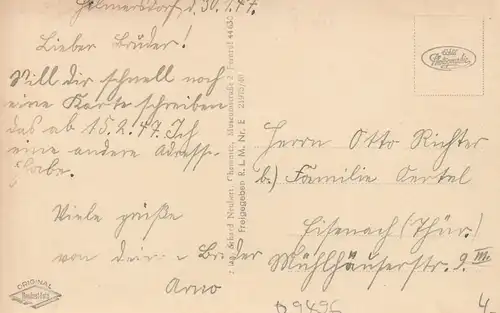 Helmersdorf d. 30.1.47.
Lieber Bruder!
Will dir schnell noch
eine Karte schreiben
das ab 15.2.47. Ich
eine andere Adresse
habe.
Viele grüße
von dein Bruder
Arno
Herrn Otto Richter
b.) Familie Oertel
Eisenach (Thür.)
Mühlhäuserstr. 9 III.
Erhard Neubert, Chemnitz, Museumstraße 2, Fernruf 44630
Freigegeben R. L. M. Nr. E
Echte Photographie
ORIGINAL
Neubert-Foto
D 9496
4.